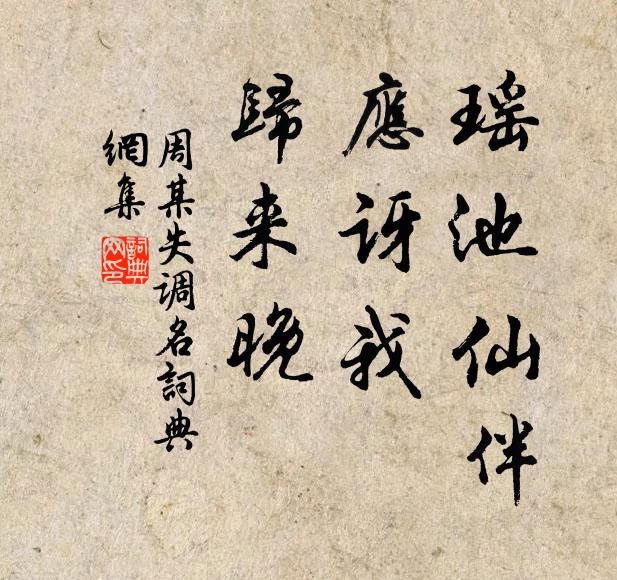 瑶池仙伴
應讶我
歸来晚
周某失调名詞典
網集
詞典
网印